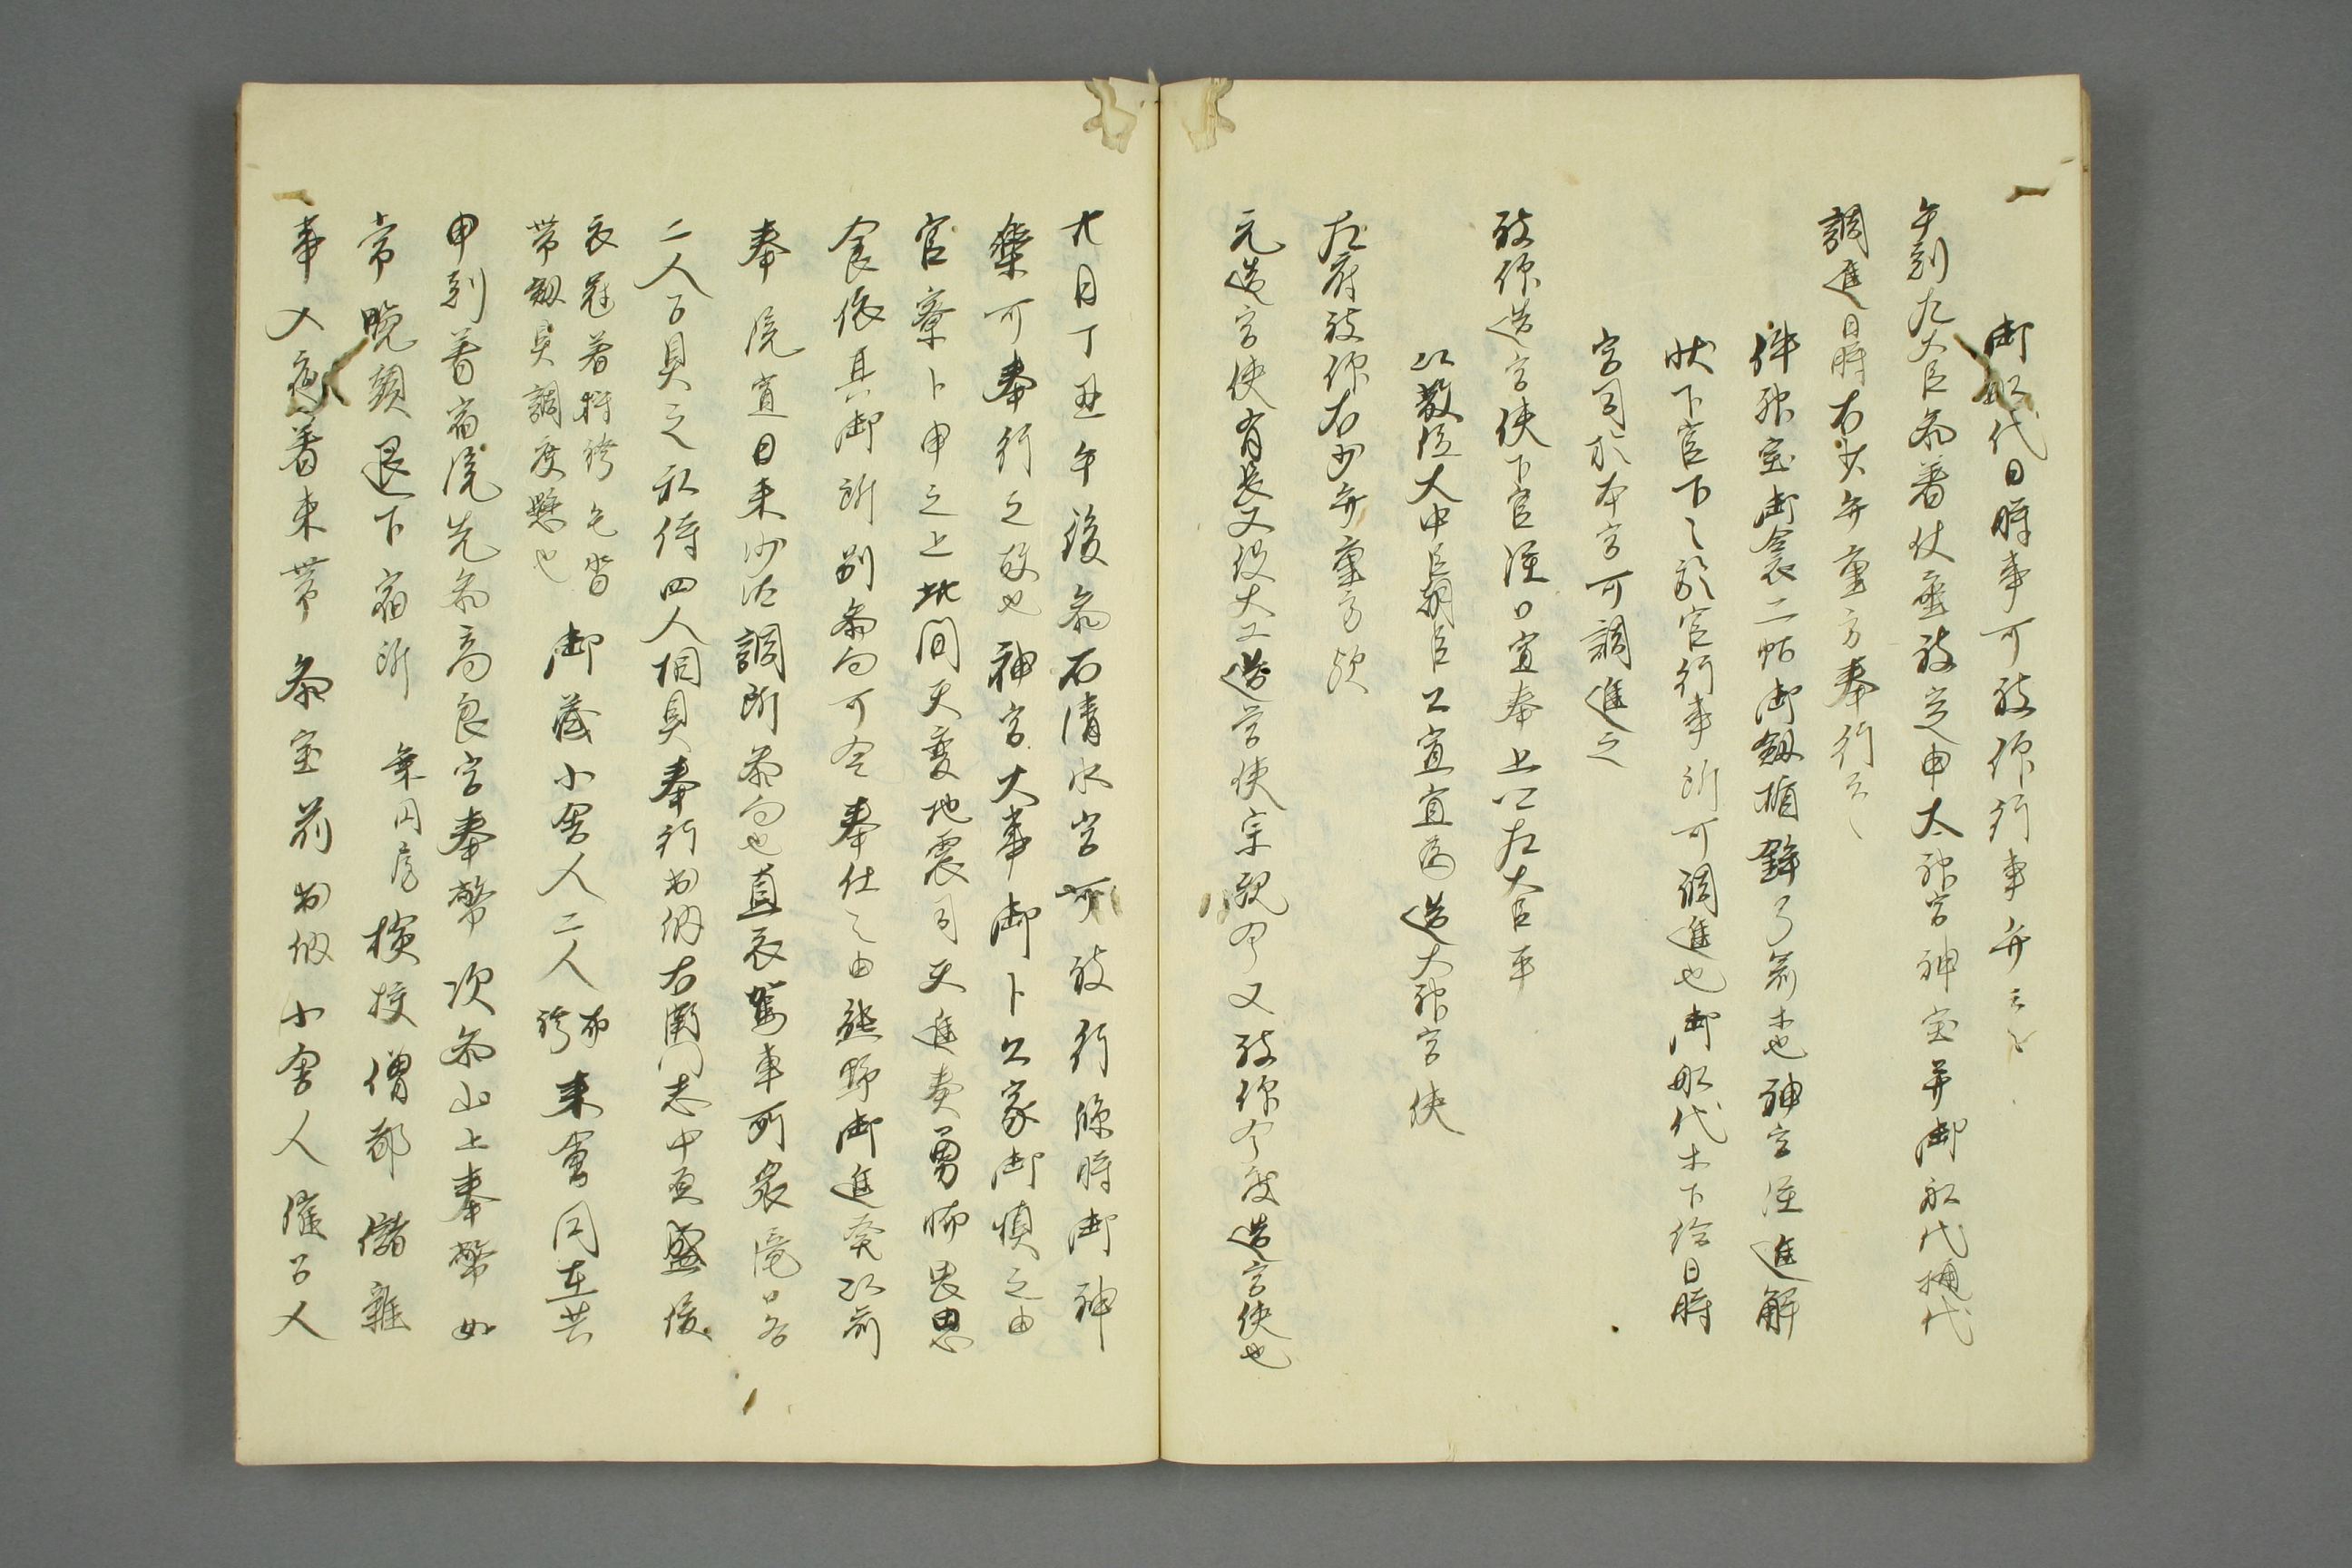 御船代日時事可被仰行事弁云々
午剋左大臣参著仗座被定申太神宮神宝并御船代桶代
調進日時右少弁重方奉行之
件神宝御衾二帖御劔楯鉾弓箭木也神宮注進解
状下官下之於官行事所可調進也御船代木下給日時
宮司於本宮可調進之
被仰造宮使下官注口宣奉上卿左大臣平
以散位大中臣朝臣公宣宜為造大神宮使
左府被仰右少弁重方歟
元造宮使有長又役夫工造宮使宗親也今又被仰今度造宮使也
廿日丁丑午後参石清水宮可被行臨時御神
楽可奉行之故也神宮大事御卜公家御慎之由
官寮卜申之上此間天変地震司天進奏勇怖畏思
食依其御祈別参向可令奉仕之由熊野御進発以前
奉院宣日来沙汰調所参向也直衣駕車所衆滝口各
二人召具之私侍四人相具奉行出納右衛門志中原盛俊
衣冠着狩袴毛沓
帯劔具調度懸也
御蔵小舎人二人布
袴来会同在共
申剋着宿院先参高良宮奉幣次参山上奉幣如
常晩頭退下宿所 乗円房検校僧都儲雑
事入夜着束帯参宝前出納小舎人催召人